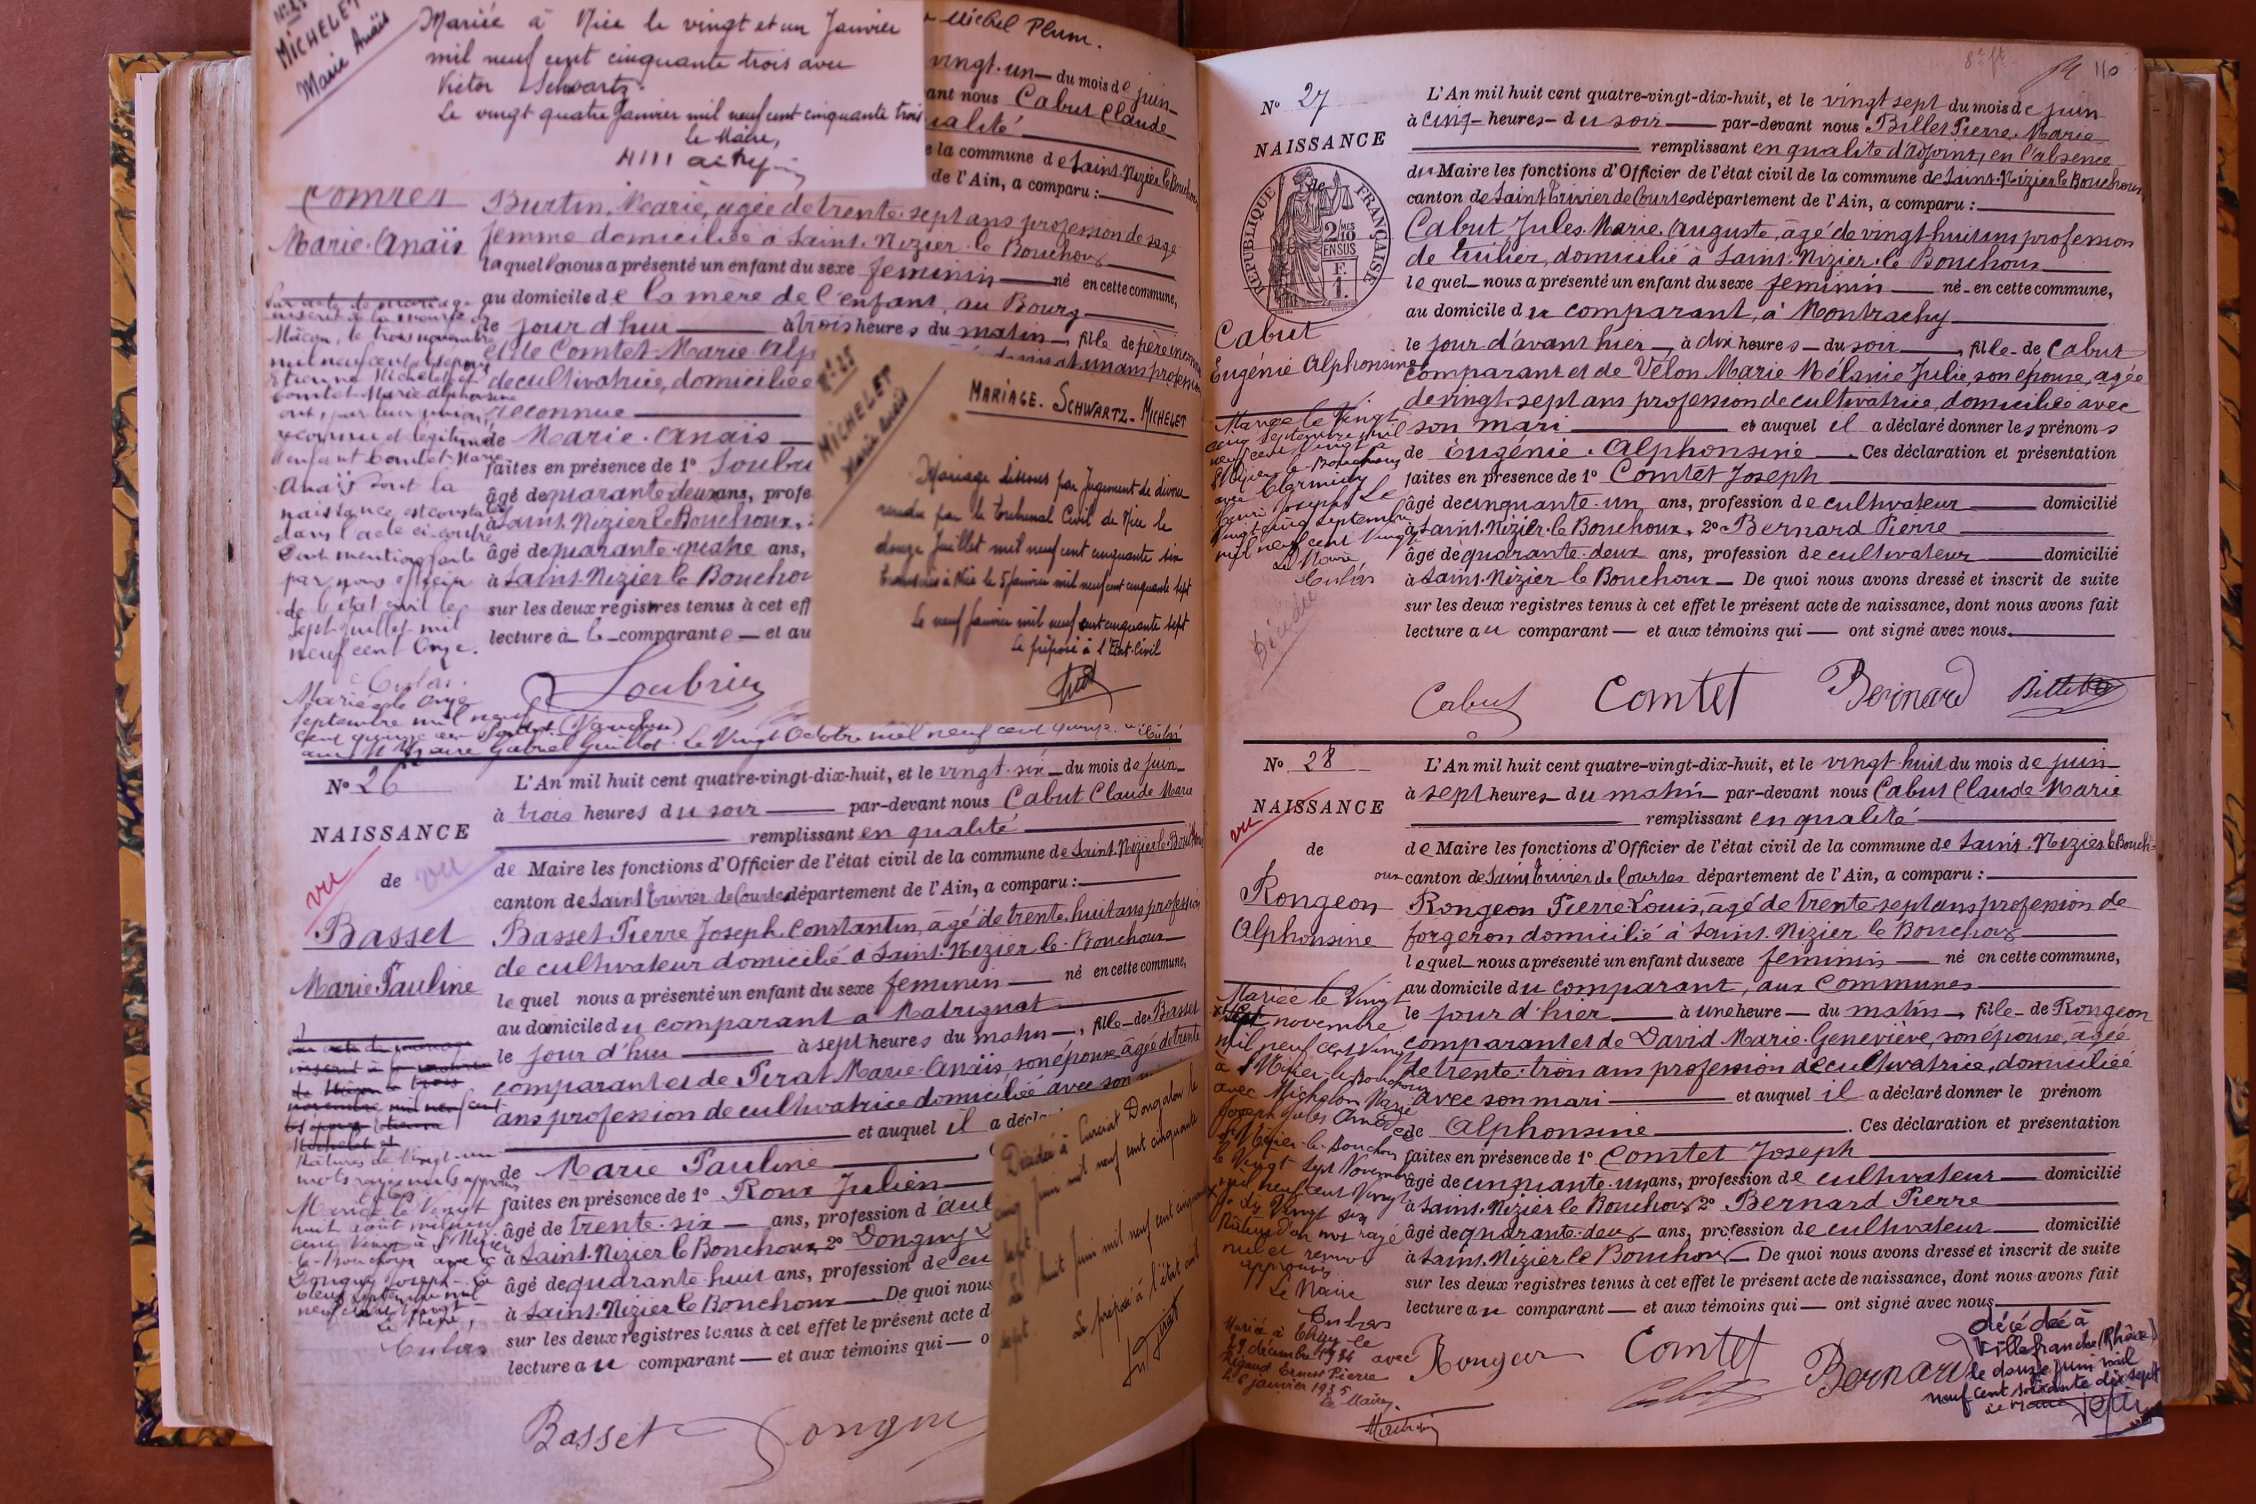 MICHELET
Marie Anaïs
Mariée à Nice le vingt et un Janvier
mil neuf cent cinquante trois avec
Victor Schwartz.
Le vingt quatre Janvier mil neuf cent cinquante trois
Le Maire,
Michel Plum.
vingt-un — du mois de juin
ant nous Cabut Claude
ualité
e la commune de Saint-Nizier le Bouchoux
de l'Ain, a comparu :
Comtet
Marie Anaïs
Burtin, Marie, agée de trente-sept ans profession de sage
femme domiciliée à Saint-Nizier-le Bouchoux
laquelle nous a présenté un enfant du sexe féminin — né en cette commune,
au domicile de la mère de l'enfant, au Bourg
le jour d'hui à trois heures du matin, fille de père inconnu
et de Comtet Marie Alp
de cultivatrice, domiciliée
reconnue
de Marie-Anaïs
faites en présence de 1° Loubri
âgé de quarante deux ans, profe
à Saint-Nizier le Bouchoux,
âgé de quarante-quatre ans,
à Saint-Nizier le Bouchou
sur les deux registres tenus à cet eff
lecture à la comparante — et au
Loubrier
Par acte de mariage
inscrit à la mairie de
Mâcon, le trois novembre
mil neuf cent
Etienne Michelet et
Comtet Marie Alphonsine
ont, par leur union,
reconnu et légitimé
l'enfant Comtet Marie
Anaïs dont la
naissance est constatée
dans l'acte ci-contre
Dont mention faite
par nous officier
de l'état civil le
sept juillet mil
neuf cent onze.
Culas
Mariée le onze
septembre mil neuf
cent quinze
Gabriel Guillot. Le vingt Octobre mil neuf cent quinze.
N° 25
MICHELET
Marie Anaïs
MARIAGE. SCHWARTZ - MICHELET
Mariage dissous par Jugement de divorce
rendu par le Tribunal Civil de Nice le
douze Juillet mil neuf cent cinquante six
transcrit à Nice le 5 Janvier mil neuf cent cinquante sept
Le neuf Janvier mil neuf cent cinquante sept
Le préposé à l'Etat-Civil
N° 26
NAISSANCE
de
vu
vu
Basset
Marie Pauline
L'An mil huit cent quatre-vingt-dix-huit, et le vingt-six — du mois de juin
à trois heures du soir — par-devant nous Cabut Claude Marie
remplissant en qualité
de Maire les fonctions d'Officier de l'état civil de la commune de Saint-Nizier le Bouchoux
canton de Saint Trivier de Courtes département de l'Ain, a comparu :
Basset Pierre Joseph Constantin, âgé de trente-huit ans profession
de cultivateur domicilié à Saint-Nizier le-Bouchoux
lequel nous a présenté un enfant du sexe féminin — né en cette commune,
au domicile du comparant à Matrignat
le jour d'hui à sept heures du matin —, fille — de Basset
comparant et de Perat Marie-Anaïs son épouse, âgée de trente
ans profession de cultivatrice domiciliée avec son
et auquel il a déclar
de Marie Pauline
faites en présence de 1° Roux Julien
âgé de trente-six — ans, profession d'au
à Saint-Nizier le Bouchoux 2° Donguy
âgé de quarante-huit ans, profession de cu
à Saint-Nizier le Bouchoux — De quoi nous
sur les deux registres tenus à cet effet le présent acte d
lecture au comparant — et aux témoins qui — o
Par acte de mariage
inscrit à la mairie
de Mâcon le trois
novembre mil neuf cent
Etienne
Michelet et
Ratures de vingt-un
mots rayés nuls approuvés
Culas
Mariée le vingt
huit août mil neuf
cent vingt à St Nizier
le-Bouchoux avec
Donguy Joseph — Le
deux septembre mil
neuf cent vingt
Le Maire,
Culas
Basset Donguy
Décédée à Curciat Dongalon le
cinq Juin mil neuf cent cinquante
sept.
Le huit Juin mil neuf cent cinquante
sept.
Le préposé à l'état civil
110
N° 27
NAISSANCE
de
RÉPUBLIQUE FRANÇAISE
2 MES
10
EN SUS
F.
1.
Cabut
Eugénie Alphonsine
L'An mil huit cent quatre-vingt-dix-huit, et le vingt sept du mois de juin
à cinq — heures — du soir — par-devant nous Billet Pierre Marie
remplissant en qualité d'adjoint, en l'absence
du Maire les fonctions d'Officier de l'état civil de la commune de Saint-Nizier le Bouchoux
canton de Saint Trivier de Courtes département de l'Ain, a comparu :
Cabut Jules Marie Auguste, âgé de vingt huit ans profession
de tuilier, domicilié à Saint-Nizier-le Bouchoux
lequel — nous a présenté un enfant du sexe féminin — né — en cette commune,
au domicile du comparant, à Montrachy
le jour d'avant hier —, à dix heures — du soir —, fille — de Cabut
comparant et de Vélon Marie Mélanie Julie, son épouse, agée
de vingt-sept ans profession de cultivatrice, domiciliée avec
son mari — et auquel il a déclaré donner les prénoms
de Eugénie-Alphonsine — . Ces déclaration et présentation
faites en présence de 1° Comtet Joseph
âgé de cinquante-un ans, profession de cultivateur — domicilié
à Saint-Nizier-le Bouchoux, 2° Bernard Pierre
âgé de quarante-deux ans, profession de cultivateur — domicilié
à Saint-Nizier le Bouchoux — De quoi nous avons dressé et inscrit de suite
sur les deux registres tenus à cet effet le présent acte de naissance, dont nous avons fait
lecture au comparant — et aux témoins qui — ont signé avec nous.
Mariée le vingt-
cinq septembre mil
neuf cent vingt à
St Nizier-le-Bouchoux
avec
Henri Joseph. Le
vingt cinq septembre
mil neuf cent vingt
Le Maire
Culas
Décédée
Cabut Comtet Bernard Billet
N° 28
NAISSANCE
vu
de
Rongeon
Alphonsine
L'An mil huit cent quatre-vingt-dix-huit, et le vingt-huit du mois de juin
à sept heures — du matin — par-devant nous Cabut Claude Marie
remplissant en qualité
de Maire les fonctions d'Officier de l'état civil de la commune de Saint-Nizier le Bouch-
oux canton de Saint Trivier de Courtes département de l'Ain, a comparu :
Rongeon Pierre Louis, âgé de trente-sept ans profession de
forgeron domicilié à Saint-Nizier le Bouchoux
lequel — nous a présenté un enfant du sexe féminin — né en cette commune,
au domicile du comparant, aux Communes
le jour d'hier — à une heure — du matin —, fille — de Rongeon
comparant et de David Marie-Geneviève, son épouse, âgée
de trente-trois ans profession de cultivatrice, domiciliée
avec son mari — et auquel il a déclaré donner le prénom
de Alphonsine — . Ces déclaration et présentation
faites en présence de 1° Comtet Joseph
âgé de cinquante-un ans, profession de cultivateur — domicilié
à Saint-Nizier le Bouchoux 2° Bernard Pierre
âgé de quarante-deux — ans, profession de cultivateur — domicilié
à Saint-Nizier le Bouchoux — De quoi nous avons dressé et inscrit de suite
sur les deux registres tenus à cet effet le présent acte de naissance, dont nous avons fait
lecture au comparant — et aux témoins qui — ont signé avec nous
Mariée le vingt
sept novembre
mil neuf cent vingt
à St Nizier-le-Bouchoux
avec Michelon Marie
Joseph Jules
St Nizier-le-Bouchoux
le vingt sept Novembre
mil neuf cent vingt
Rature d'un mot rayé
nul et renvoi
approuvés
Le Maire
Culas
Mariée à
29 décembre 1934 avec
Rigaud Ernest Pierre
le 6 janvier 1935
Le Maire,
Rongeon Comtet Bernard
décédée à
Villefranche (Rhône)
le douze Juin mil
neuf cent soixante dix sept
Le Maire